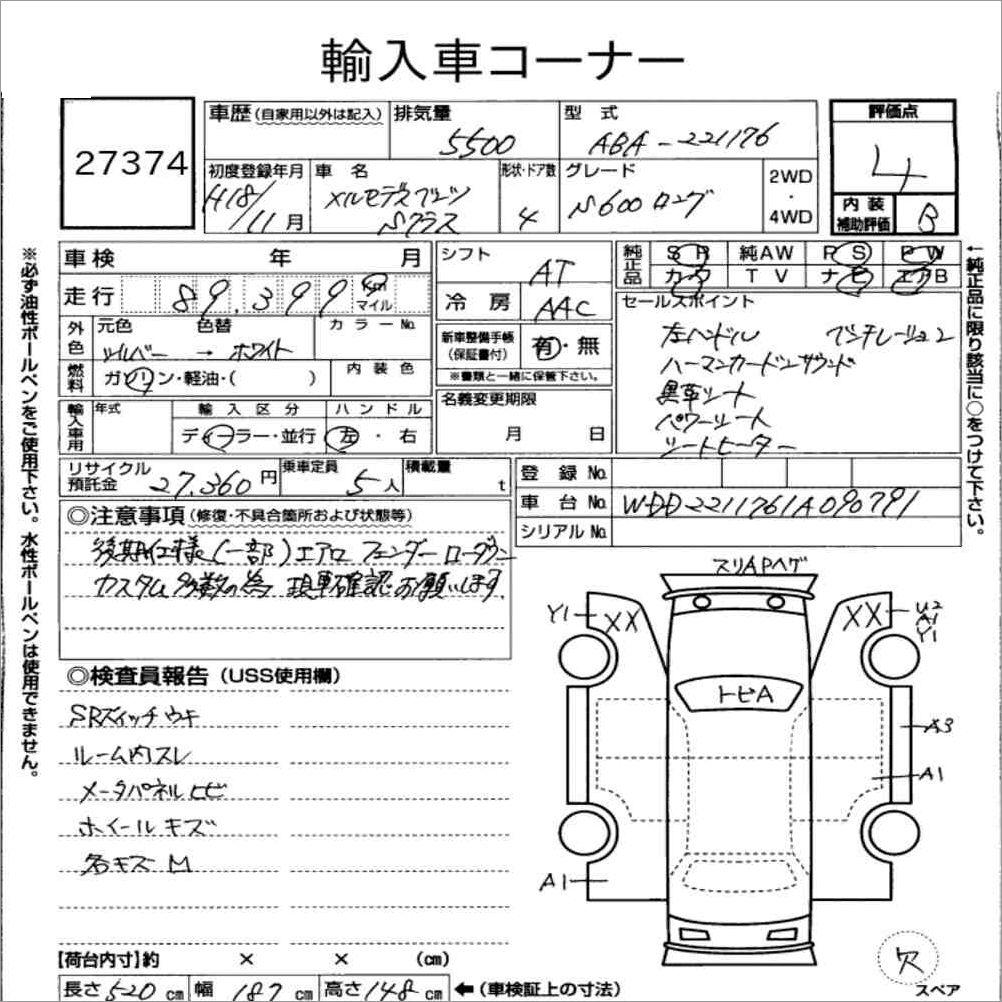 輸入車コーナー
27374
車歴 (自家用以外は記入)
排気量
5500
型式
ABA-221176
評価点
4
初度登録年月
H18/11月
車名
メルセデスベンツ
Sクラス
形状・ドア数
4
グレード
S600ロング
2WD
・
4WD
内装
補助評価
B
※必ず油性ボールペンをご使用下さい。水性ボールペンは使用できません。
車検 年 月
走行 89,399 Km マイル
外色
元色 色替 カラーNo.
シルバー → ホワイト
燃料
ガソリン・軽油・( )
内装色
輸入車用
年式
輸入区分
ハンドル
ディーラー・並行
左・右
シフト
AT
冷房
AAC
新車整備手帳
(保証書付)
有・無
※書類と一緒に保管下さい。
名義変更期限
月 日
純正品
SR 純AW PS PW
カワ TV ナビ エアB
セールスポイント
左ハンドル ベンチレーション
ハーマンカードンサウンド
黒革シート
パワーシート
シートヒーター
←純正品に限り該当に○をつけて下さい。
リサイクル
預託金
27,360円
乗車定員
5人
積載量
t
登録No.
車台No.
WDD2211761A090791
シリアルNo.
◎注意事項 (修復・不具合箇所および状態等)
後期仕様(一部)エアロ フェンダー ローダウン
カスタム多数の為 現車確認お願いします
◎検査員報告 (USS使用欄)
SRスイッチ ウキ
ルーム内スレ
メータパネル ヒビ
ホイール キズ
各キズ M
スリAPヘゲ
Y1
XX
XX
U2
A1
Y1
トビA
A3
A1
A1
欠
スペア
【荷台内寸】約 × × (cm)
長さ 520 cm 幅 187 cm 高さ 148 cm ←(車検証上の寸法)